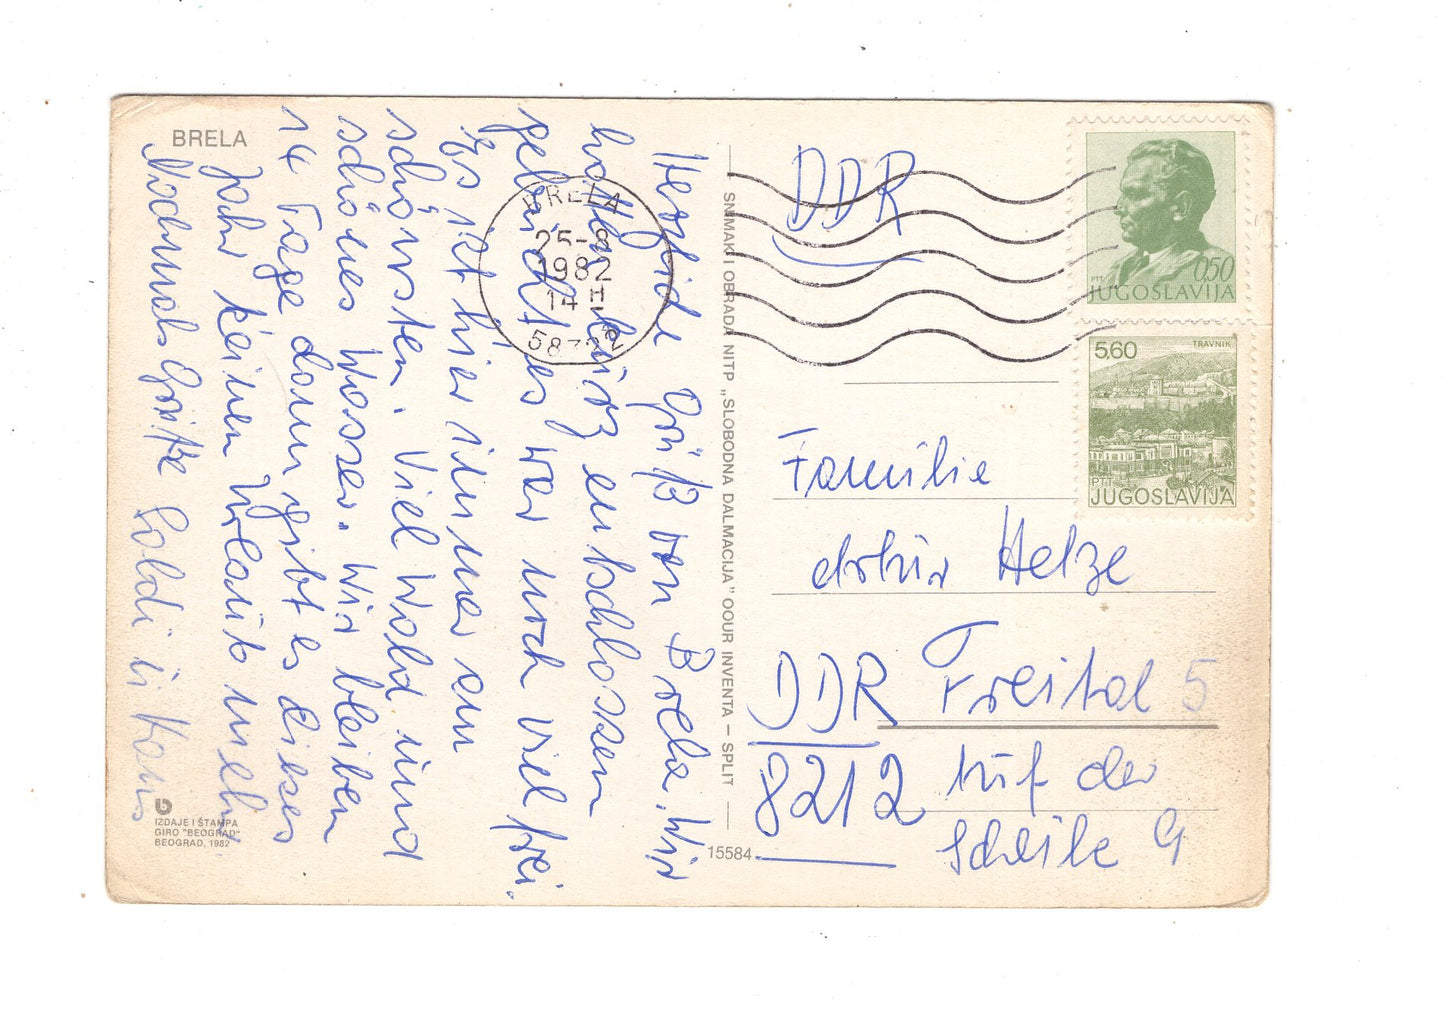 BRELA
Herzliche Grüße von Brela. Wir
hatten kurz entschlossen
gebucht, es war noch viel frei.
Es ist hier immer am
schönsten. Viel Wald und
schönes Wasser. Wir bleiben
14 Tage dann gibt es dieses
Jahr keinen Urlaub mehr
Nochmals Grüße
IZDAJE I ŠTAMPA
GIRO "BEOGRAD"
BEOGRAD, 1982
BRELA
25-8
1982
14 H
SNIMAK I OBRADA NITP „SLOBODNA DALMACIJA" OOUR INVENTA – SPLIT
15584
DDR
PTT
0,50
JUGOSLAVIJA
5,60
TRAVNIK
PTT
JUGOSLAVIJA
Familie
Artur Hetze
DDR Freital 5
8212 Auf der
Scheibe 9